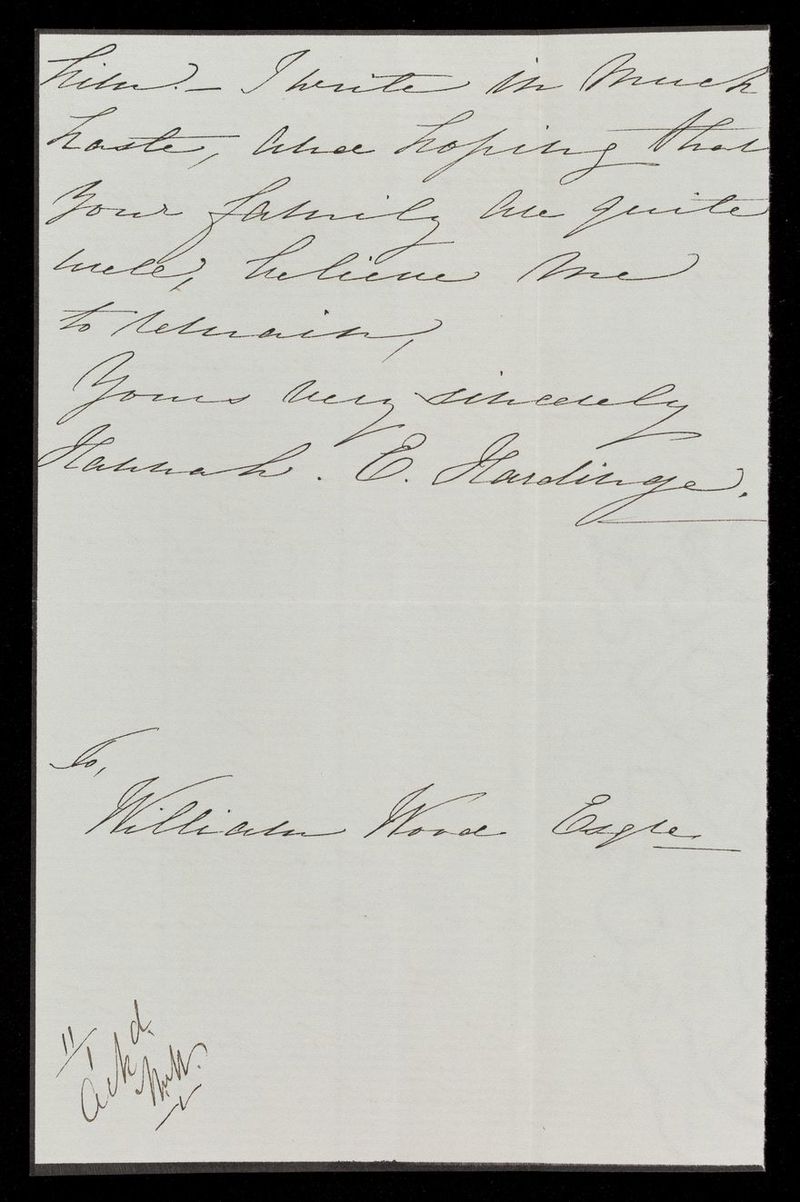 him. – I write in much
haste, and hoping that
your family are quite
well, believe me
to remain,
Yours very sincerely
Hannah. E. Hardinge.
To,
William Wood Esqre.
11
Ackd.